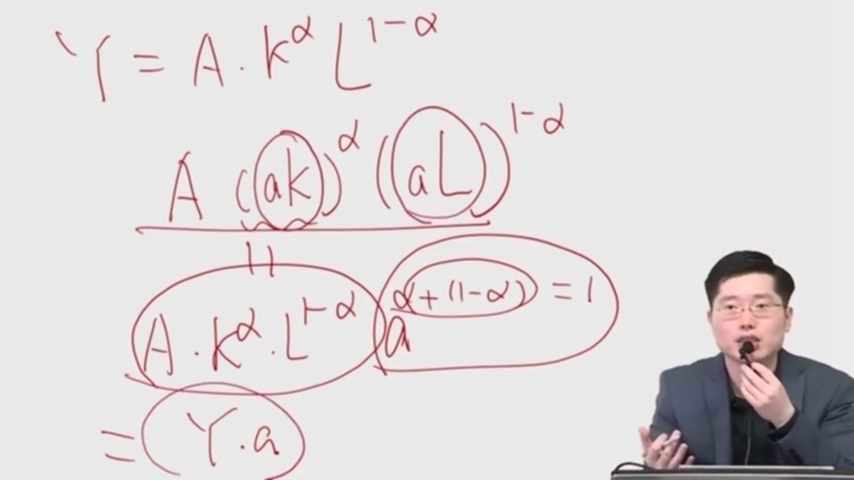 Y = A · K^α L^{1-α}
A (aK)^α (aL)^{1-α}
||
A · K^α · L^{1-α} a^{α+(1-α)} = 1
= Y · a